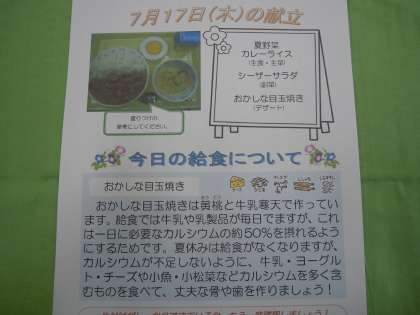 7月17日(木)の献立
夏野菜
カレーライス
(主食・主菜)
シーザーサラダ
(副菜)
おかしな目玉焼き
(デザート)
盛りつけの
参考にしてください。
今日の給食について
おかしな目玉焼き
おかしな目玉焼きは黄桃と牛乳寒天で作ってい
ます。給食では牛乳や乳製品が毎日でますが、これ
は一日に必要なカルシウムの約50%を摂れるよう
にするためです。夏休みは給食がなくなりますが、
カルシウムが不足しないように、牛乳・ヨーグル
ト・チーズや小魚・小松菜などカルシウムを多く含
むものを食べて、丈夫な骨や歯を作りましょう!